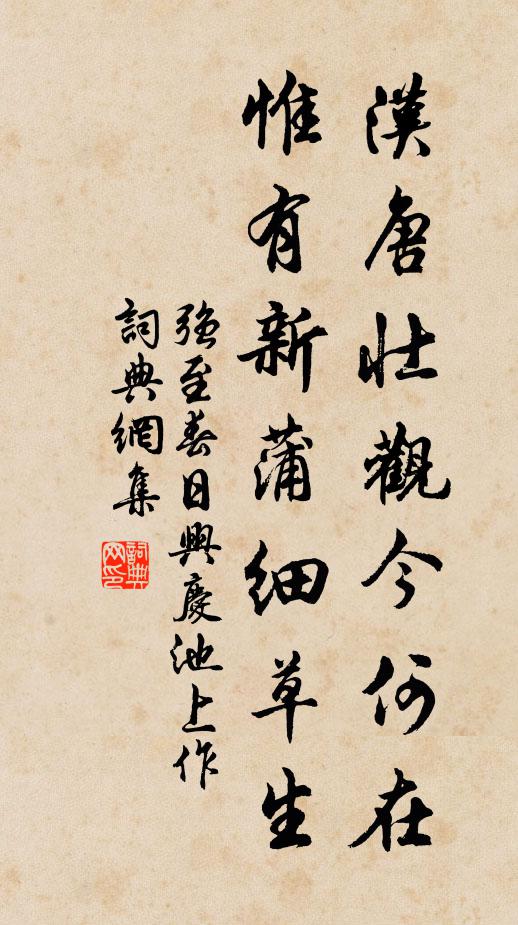 漢唐壯觀今何在
惟有新蒲細草生
強至春日興慶池上作
詞典網集
詞典网印